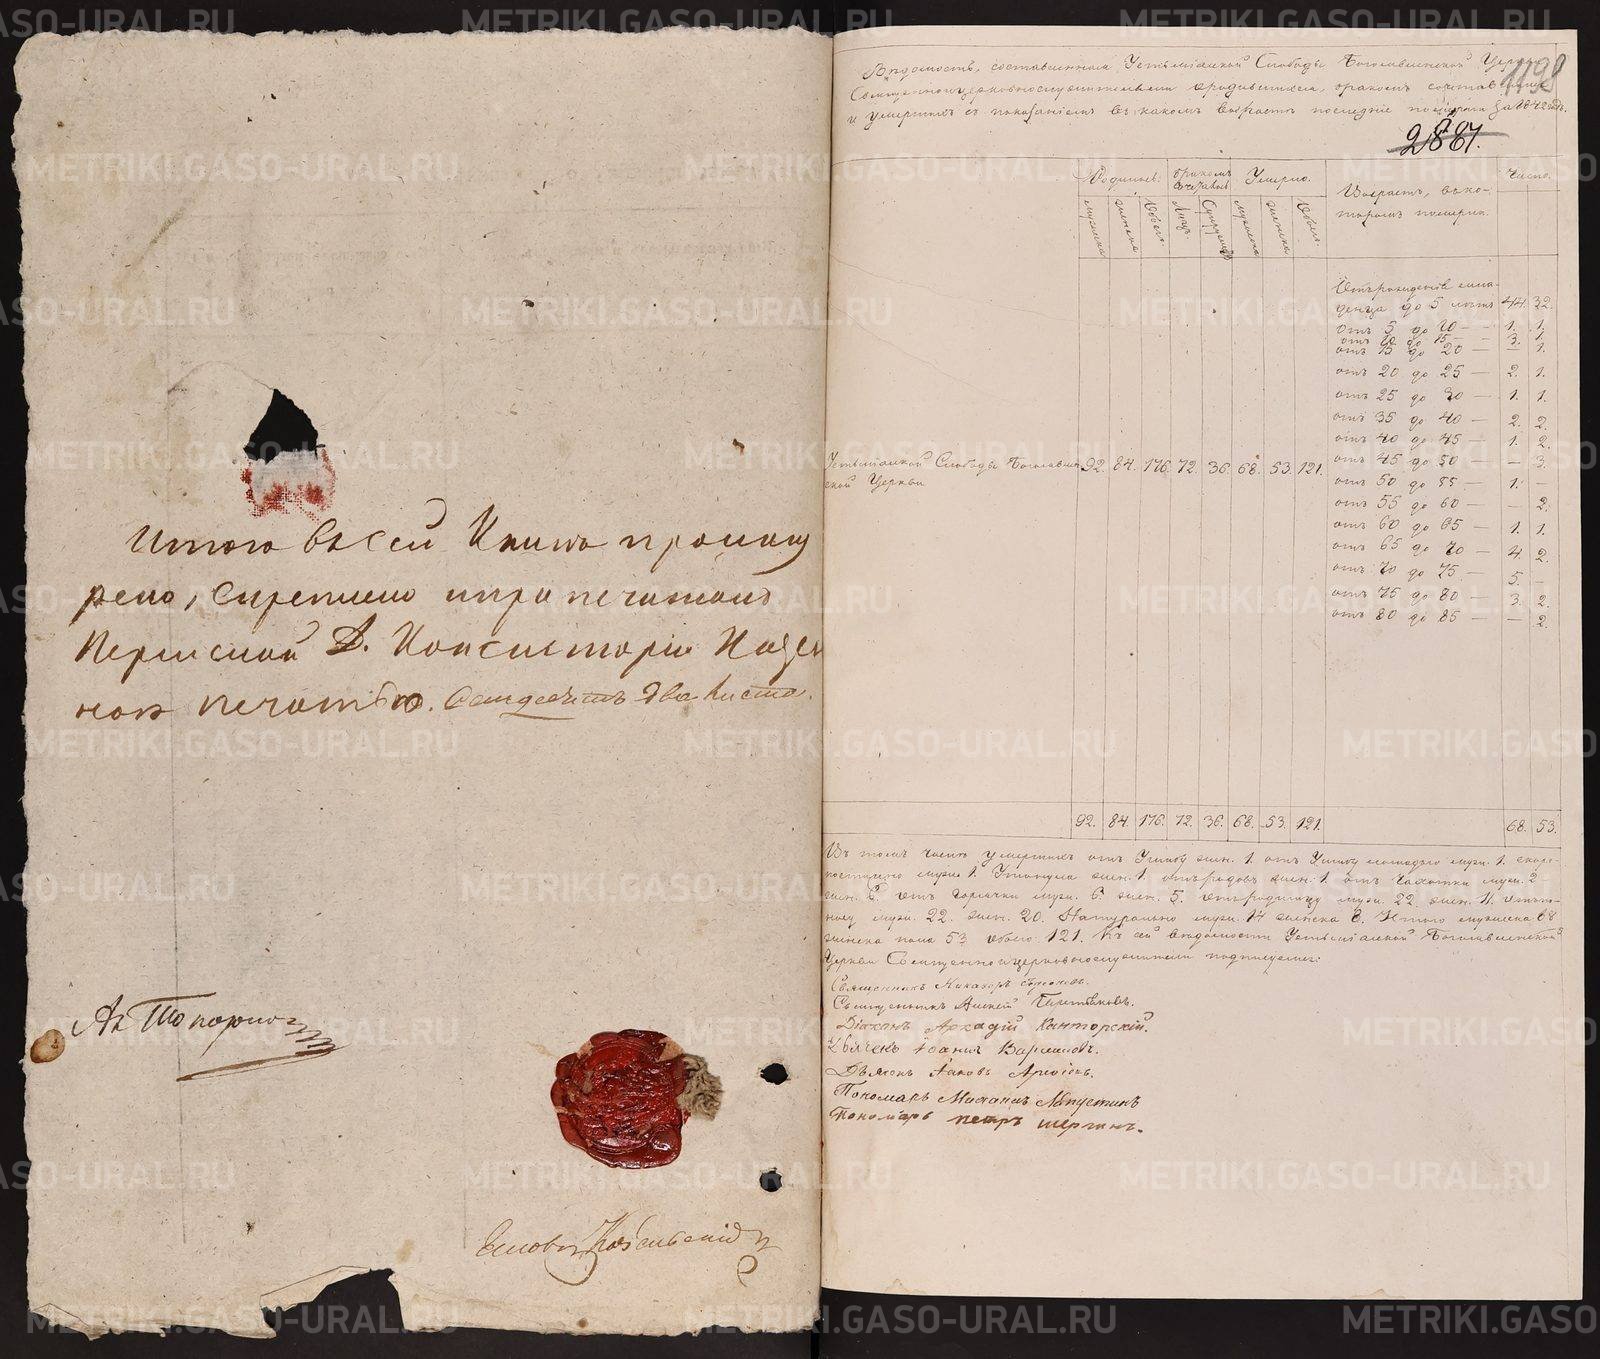 Итого въ сей Книгѣ прошну
рено, скреплено и припечатано
Пермской Д. Консисторіи Казен
ною печатью. Семдесятъ два листа.
Ведомость, составленная Устьміаской Слободы Богоявленской Церкви
Священноцерковнослужителями о родившихся, бракомъ сочетавшихся
и умершихъ съ показаніемъ въ какомъ возрастѣ последніе померли за 1842 годъ.
1198
2887.
Родилось. бракомъ сочетались Умерло. Возрастъ, въ ко-
торомъ померли. Число.
мужеска женска Обоего. Лицъ. Супружествъ мужеска женска Обоего.
Отъ рожденія мла-
денца до 5 лѣтъ 44. 32.
отъ 5 до 10 — 1. 1.
отъ 10 до 15 — 3. 1.
отъ 15 до 20 — — 1.
отъ 20 до 25 — 2. 1.
отъ 25 до 30 — 1. 1.
отъ 35 до 40 — 2. 2.
отъ 40 до 45 — 1. 2.
отъ 45 до 50 — — 3.
отъ 50 до 55 — 1. —
отъ 55 до 60 — — 2.
отъ 60 до 65 — 1. 1.
отъ 65 до 70 — 4. 2.
отъ 70 до 75 — 5. —
отъ 75 до 80 — 3. 2.
отъ 80 до 85 — — 2.
Устьміаской Слободы Богоявлен 92. 84. 176. 72. 36. 68. 53. 121.
ской Церкви
92. 84. 176. 72. 36. 68. 53. 121. 68. 53.
Въ томъ числѣ умершихъ отъ жен. 1. отъ муж. 1. скоро-
постижно муж. 1. Утонула жен. 1. отъ родовъ жен. 1. отъ чахотки муж. 2
жен. 6. отъ горячки муж. 6. жен. 5. отъ родимцу муж. 22. жен. 11. отъ по-
носу муж. 22. жен. 20. Натурально муж. 14 женска 8. Итого мужеска 68
женска пола 53 обоего 121. Къ сей ведомости Устьміаской Богоявленской
Церкви Священноицерковнослужители подписуемся:
Священникъ Никаноръ
Священникъ Алексій
Діаконъ Аркадій Канторскій.
Дьячекъ Іоаннъ
Дьячокъ Іаковъ
Пономарь Михаилъ
Пономарь петръ шергинъ.
METRIKI.GASO-URAL.RU